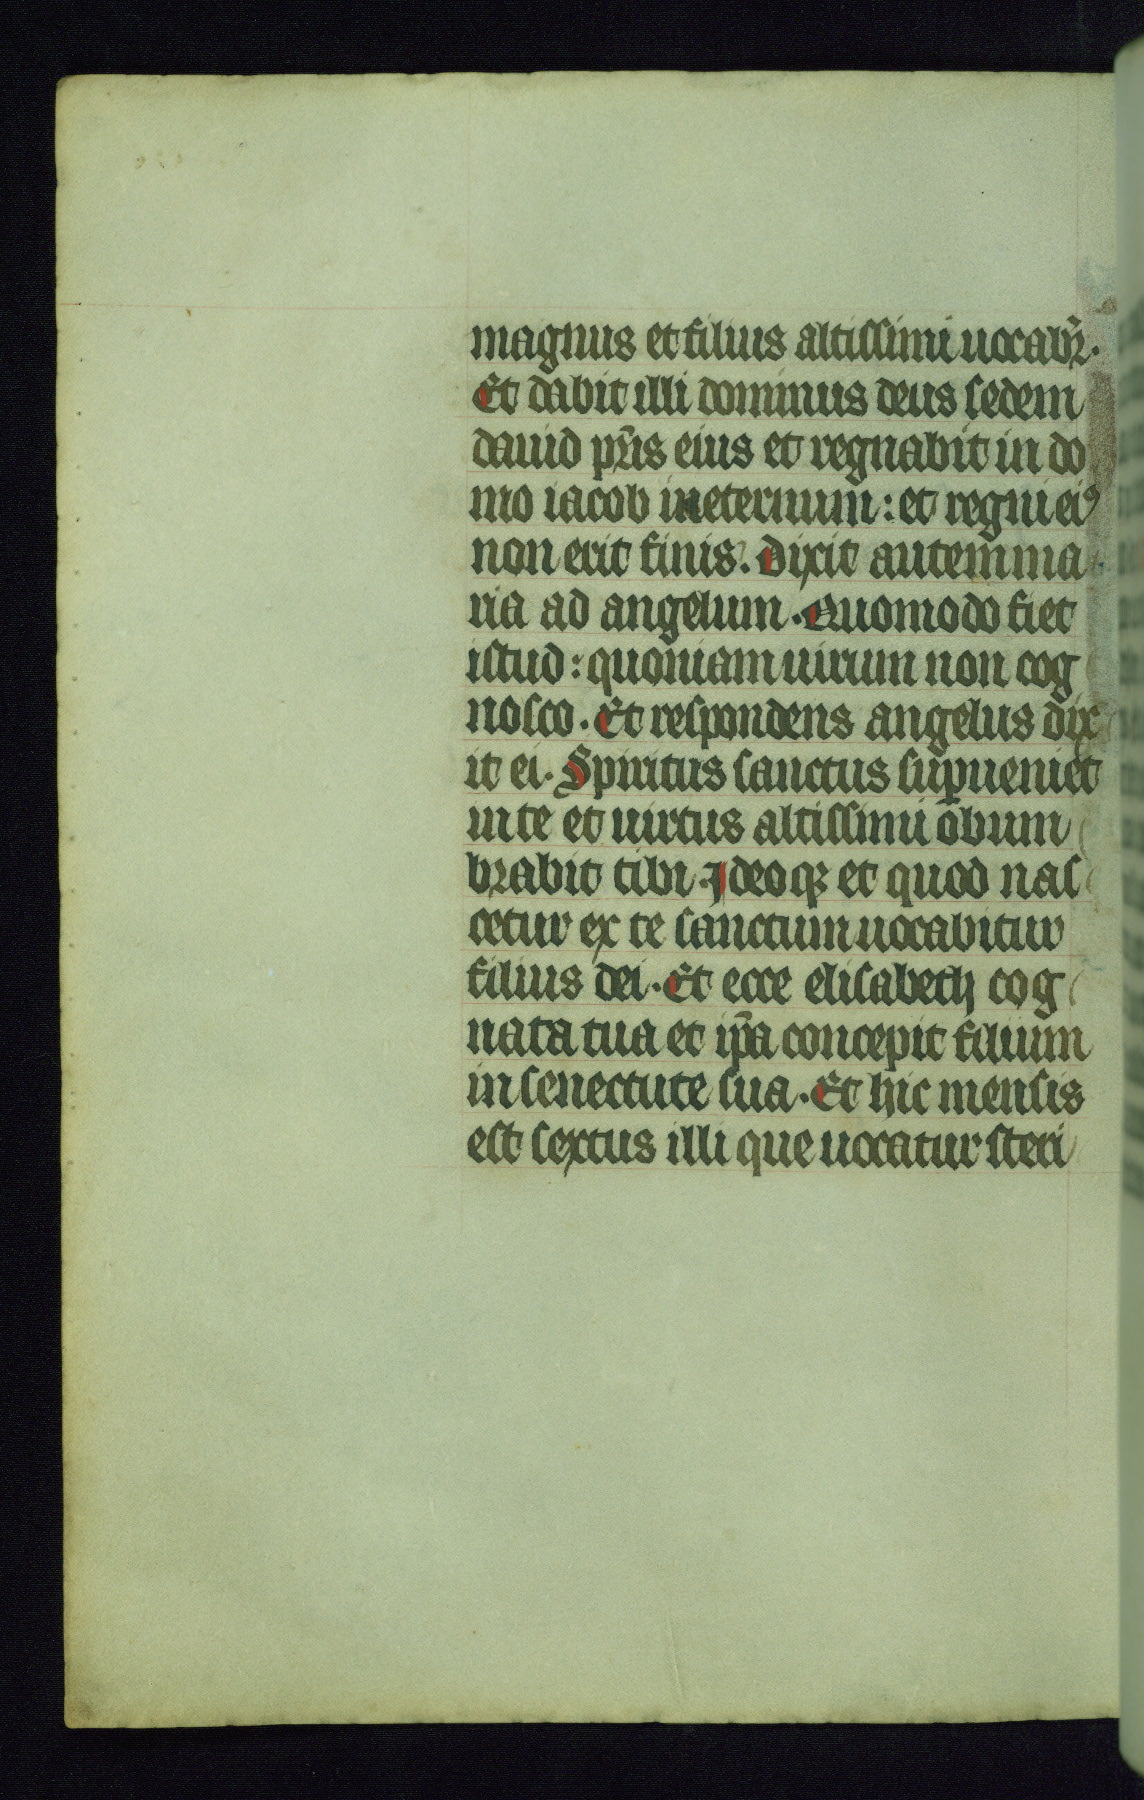 magnus et filius altissimi uocabr̃.
Et dabit illi dominus deus sedem
dauid pr̃is eius et regnabit in do
mo iacob in eternum : et regni eiꝰ
non erit finis. Dixit autem ma
ria ad angelum. Quomodo fiet
istud : quoniam uirum non cog
nosco. Et respondens angelus dix
it ei. Spiritus sanctus suꝑueniet
in te et uirtus altissimi obum
brabit tibi. Ideoqꝫ et quod nas
cetur ex te sanctum uocabitur
filius dei. Et ecce elisabeth cog
nata tua et ip̃a concepit filium
in senectute sua. Et hic mensis
est sextus illi que uocatur steri